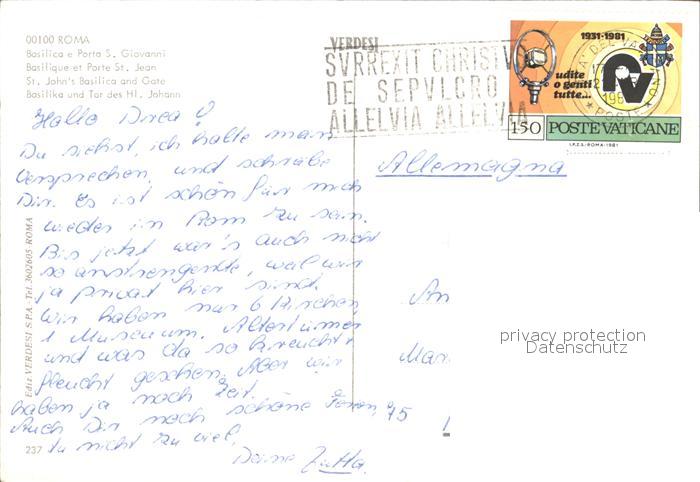 00100 ROMA
Basilica e Porta S. Giovanni
Basilique et Porte St. Jean
St. John's Basilica and Gate
Basilika und Tor des Hl. Johann
VERDESI
SVRREXIT CHRISTVS
DE SEPVLCRO
ALLELVIA ALLELVIA
1931-1981
udite
o genti
tutte...
RV
150 POSTE VATICANE
I.P.Z.S.-ROMA-1981
Hallo Drea!
Du siehst, ich halte mein
Versprechen, und schreibe
Dir. Es ist schön für mich
wieder in Rom zu sein.
Bis jetzt war's auch nicht
so anstrengende, weil wir
ja privat hier sind.
Wir haben nur 6 Kirchen,
1 Museum, Altertümer
und was da so kreucht u
fleucht gesehen. Aber wir
haben ja noch Zeit.
Auch Dir noch schöne Ferien,
tu nicht zu viel.
Deine Jutta.
Allemagna
An
Mar
75
!
privacy protection
Datenschutz
Ediz. VERDESI S.P.A. - Tel. 3602605 ROMA
237